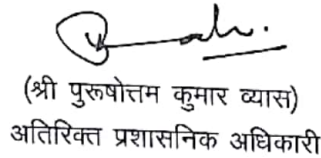 (श्री पुरूषोत्तम कुमार व्यास)
अतिरिक्त प्रशासनिक अधिकारी